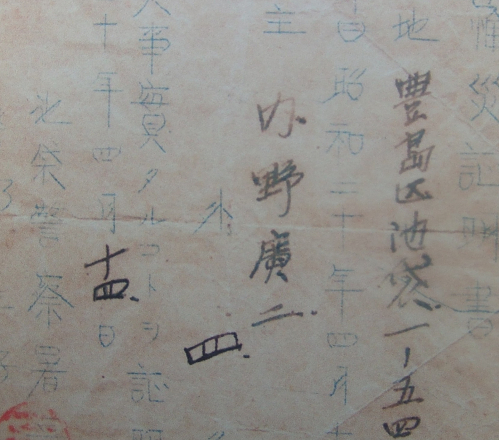 罹災証明書
地 豊島区池袋一ー五四
日昭和二十年四月十
主 野廣二
外 四
事實タルコトヲ証
十年四月十四日
池袋警察署